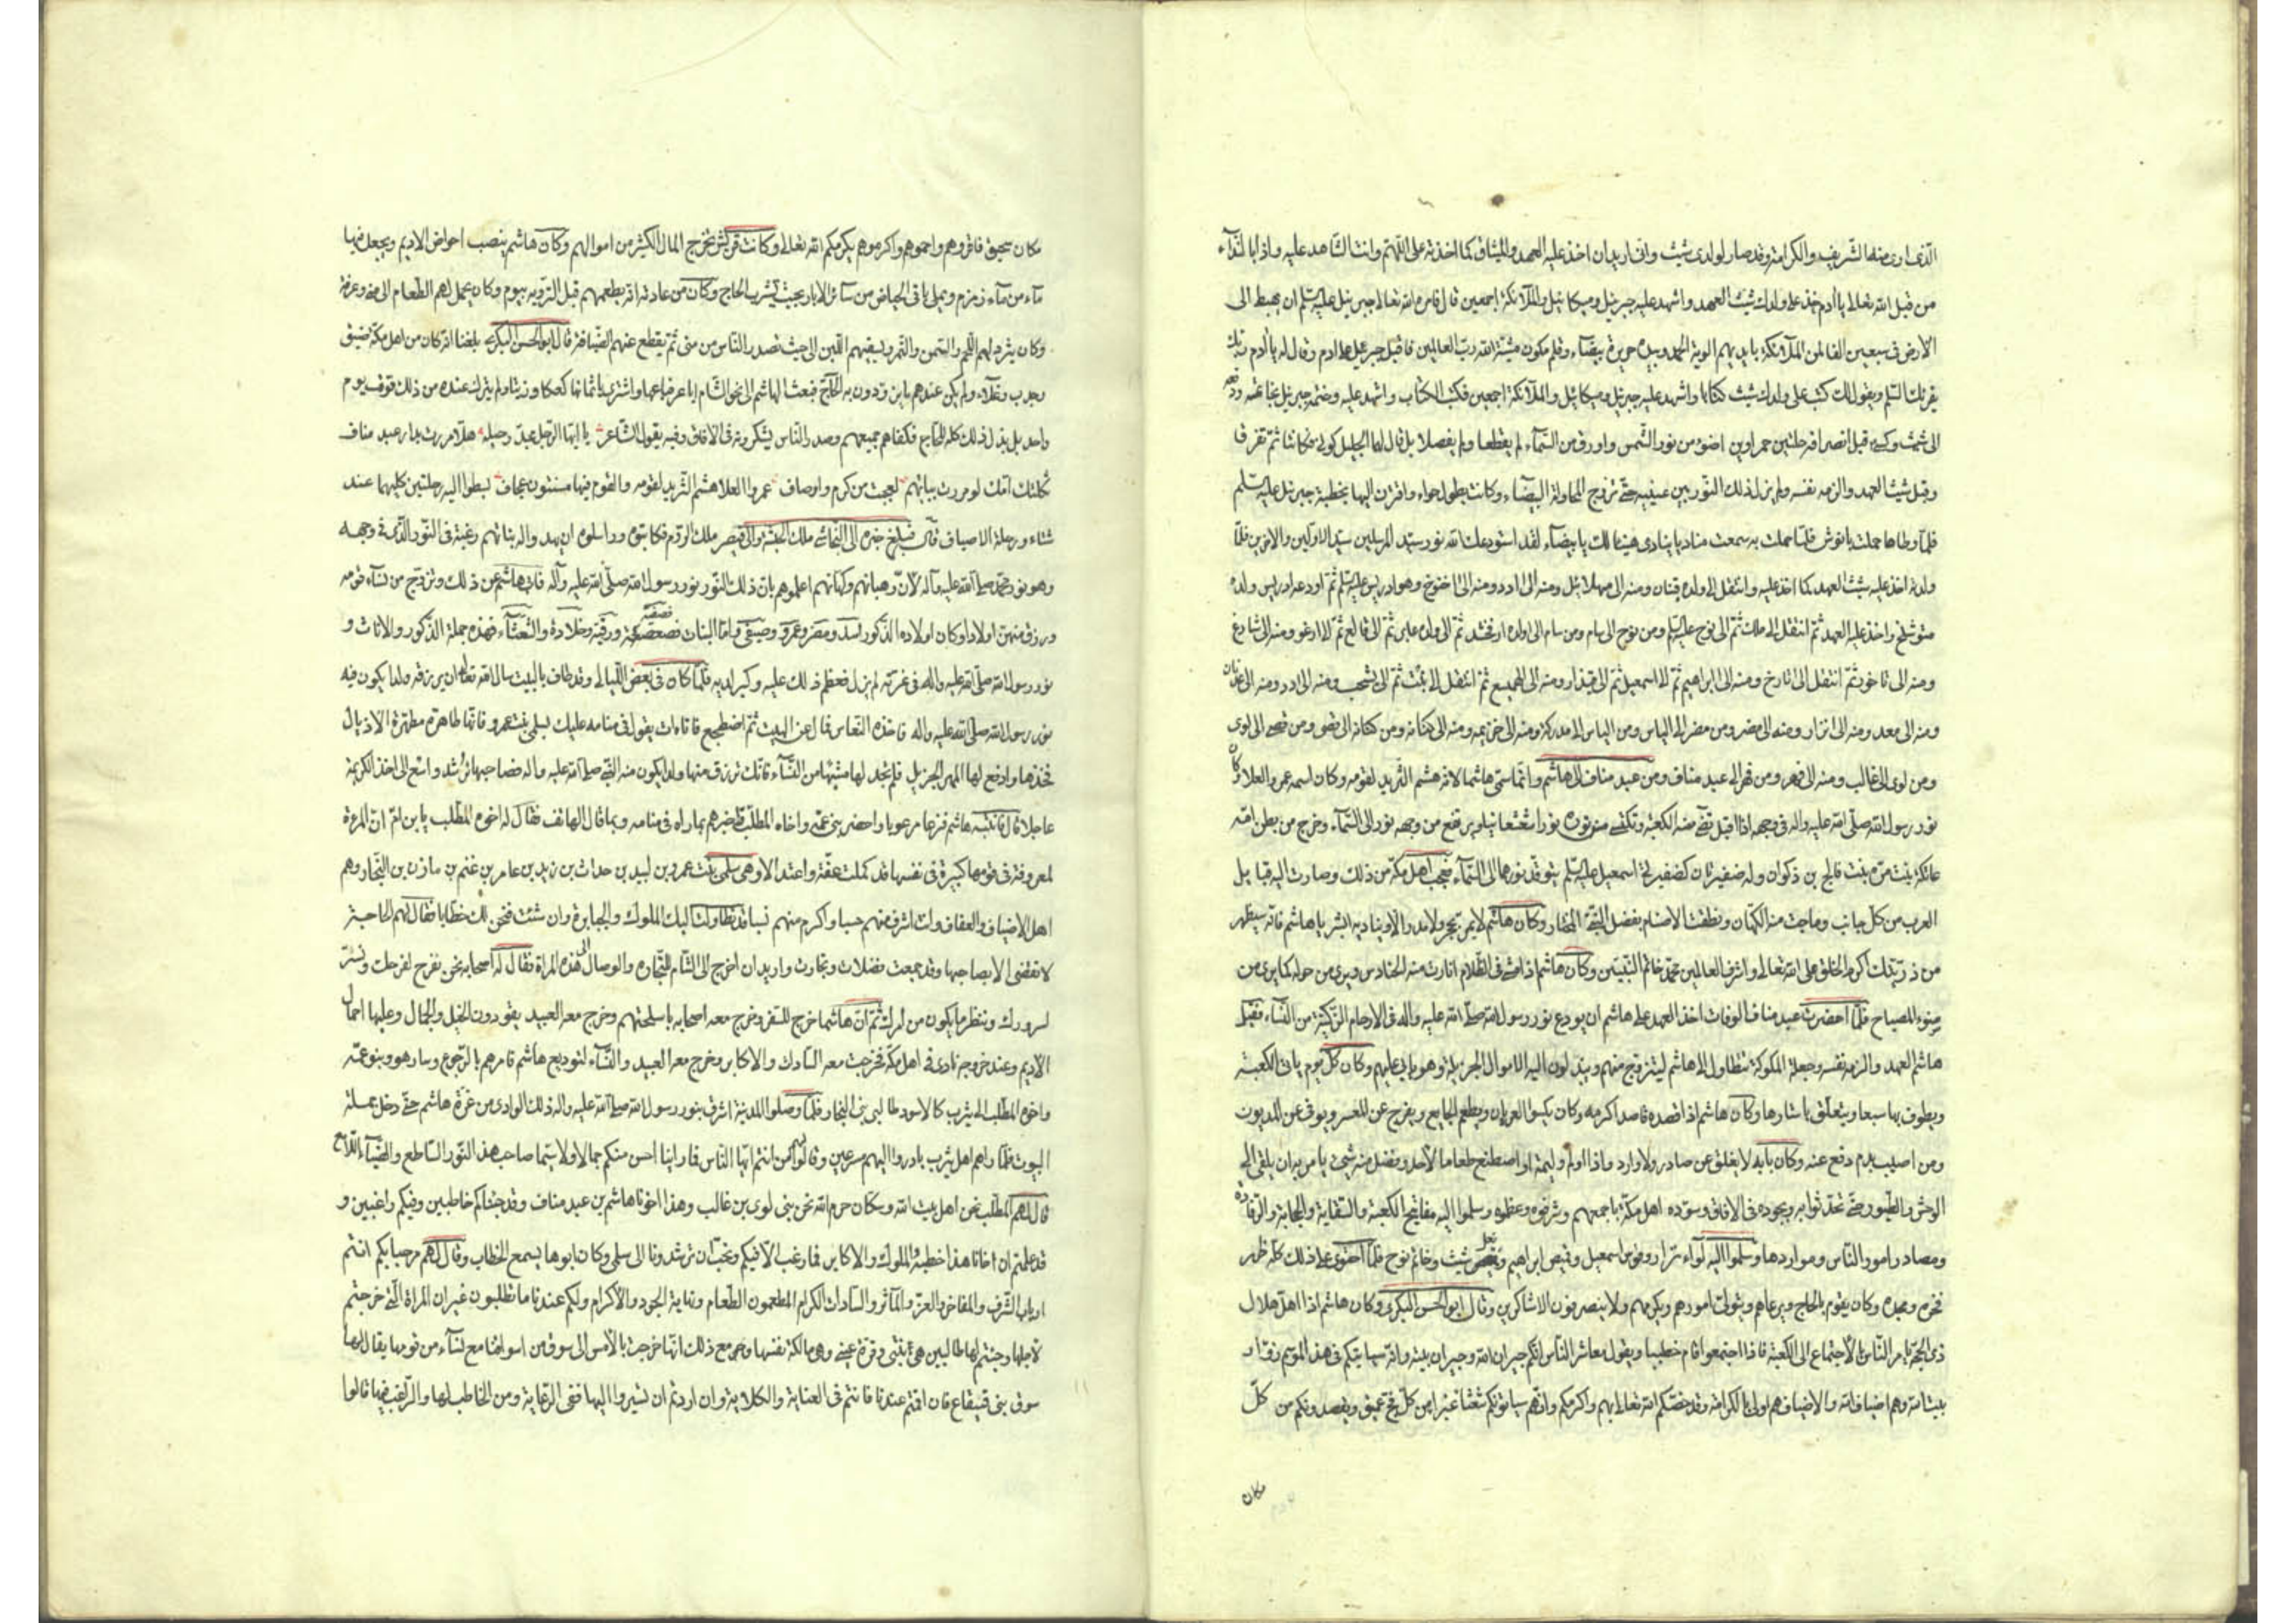 الذى ارى منها التشريف والكرامة وقد صار لولدى شيث وانى اريد ان اخذ عليه العهد والميثاق كما اخذته على اللهم وانت الشاهد عليه واذا بالنداء
من قبل الله تعالى يا ادم خذ على ولدك شيث العهد واشهد عليه جبرئيل وميكائيل والملائكة اجمعين قال فامر الله تعالى جبرئيل عليه السلم ان يهبط الى
الارض فى سبعين الفا من الملائكة بايديهم الوية الحمد وبيده حريرة بيضاء وقلم مكون مشية الله رب العالمين فاقبل جبرئيل على ادم وقال له يا ادم ربك
يقرئك السلم ويقول لك اكتب على ولدك شيث كتابا واشهد عليه جبرئيل وميكائيل والملائكة اجمعين فكتب الكتاب واشهد عليه وختمه جبرئيل بخاتمه ودفعه
الى شيث وكسى قبل انصرافه حلتين حمراوين اضوء من نور الشمس واورق من السماء لم يقطعا ولم يفصلا بل قال لهما الجليل كونى فكانتا ثم تفرقا
وقبل شيث العهد والزمه نفسه ولم يزل ذلك النور بين عينيه حتى تزوج المحاولة البيضاء وكانت بطول حواء واقترن اليها بخطبة جبرئيل عليه السلم
فلما وطاها حملت بانوش فلما حملت به سمعت مناديا ينادى هنيئا لك يا بيضاء لقد استودعك الله نور سيد المرسلين سيد الاولين والاخرين فلما
ولدته اخذ عليه شيث العهد كما اخذ عليه وانتقل الى ولده قينان ومنه الى مهلائيل ومنه الى ادد ومنه الى اخنوخ وهو ادريس عليه السلم ثم اودعه ادريس ولده
متوشلخ واخذ عليه العهد ثم انتقل الى ملك ثم الى نوح عليه السلم ومن نوح الى سام ومن سام الى اولده ارفخشد ثم الى ولده عابر ثم الى فالع ثم الى ارغو ومنه الى شارغ
ومنه الى ناخور ثم انتقل الى تارخ ومنه الى ابراهيم ثم الى اسمعيل ثم الى قيذار ومنه الى الهميسع ثم انتقل الى نبت ثم الى يشحب ومنه الى ادد ومنه الى عدنان
ومنه الى معد ومنه الى نزار ومنه الى مضر ومن مضر الى الياس ومن الياس الى مدركة ومنه الى خزيمه ومنه الى كنانه ومن كنانه الى قصى ومن قصى الى لوى
ومن لوى الى غالب ومنه الى فهر ومن فهر الى عبد مناف ومن عبد مناف الى هاشم وانما سمى هاشما لانه هشم الثريد لقومه وكان اسمه عمرو العلا وكان
نور رسول الله صلى الله عليه واله فى وجهه اذا اقبل تضئ منه الكعبة وتكتسى من نوره نورا شعشعانيا ويرتفع من وجهه نور الى السماء وخرج من بطن امه
عاتكة بنت مرة بنت فالج بن ذكوان وله ضفيرتان كضفيرتى اسمعيل عليه السلم يتوقد نورهما الى السماء فعجب اهل مكة من ذلك وصارت اليه قبايل
العرب من كل جانب وماجت منه الكهان ونطقت الاصنام بفضل النبى المختار وكان هاشم لا يمر بحجر ولا مدر الا ويناديه ابشر يا هاشم فانه سيظهر
من ذريتك اكرم الخلق على الله تعالى واشرف العالمين محمد خاتم النبيين وكان هاشم اذا مشى فى الظلام انارت منه الحنادس ويرى من حوله كما يرى من
ضوء المصباح فلما احضرت عبد مناف الوفات اخذ العهد على هاشم ان يودع نور رسول الله صلى الله عليه واله فى الارحام الزكية من النساء فقبل
هاشم العهد والزمه نفسه وجعلت الملوك تتطاول الى هاشم ليتزوج منهم ويبذلون اليه الاموال الجزيلة وهو يابى عليهم وكان كل يوم ياتى الكعبة
ويطوف بها سبعا ويتعلق باستارها وكان هاشم اذا قصده قاصد اكرمه وكان يكسو العريان ويطعم الجايع ويفرج عن المعسر ويوفى عن المديون
ومن اصيب بدم دفع عنه وكان بابه لا يغلق عن صادر ولا وارد واذا اولم وليمة او اصطنع طعاما لاحد وفضل منه شئ يامر به ان يلقى الى
الوحش والطيور حتى تحدثوا به وبجوده فى الافاق وسوده اهل مكة باجمعهم وشرفوه وعظموه وسلموا اليه مفاتيح الكعبة والسقاية والحجابة والرفادة
ومصادر امور الناس ومواردها وسلموا اليه لواء نزار وقوس اسمعيل وقميص ابراهيم ونعل شيث وخاتم نوح فلما احتوى على ذلك كله ظهر
فخره ومجده وكان يقوم بالحاج ويرعاهم ويتولى امورهم ويكرمهم ولا ينصرفون الا شاكرين وقال ابو الحسن البكرى وكان هاشم اذا اهل هلال
ذى الحجة يامر الناس بالاجتماع الى الكعبة فاذا اجتمعوا قام خطيبا ويقول معاشر الناس انكم جيران الله وجيران بيته وانه سياتيكم فى هذا الموسم زوار
بيت الله وهم اضياف الله والاضياف هم اولى بالكرامة وقد خصكم الله تعالى بهم واكرمكم وانهم سياتونكم شعثا غبرا من كل فج عميق ويقصدونكم من كل
مكان
مكان سحيق فاقروهم واحموهم واكرموهم يكرمكم الله تعالى وكانت قريش تخرج المال الكثير من اموالهم وكان هاشم ينصب احواض الاديم ويجعل فيها
ماء من ماء زمزم ويملى باقى الحياض من سائر الابار بحيث يشرب الحاج وكان من عادته انه يطعمهم قبل التروية بيوم وكان يحمل لهم الطعام الى منى وعرفة
وكان يثرد لهم اللحم والسمن والتمر ويسقيهم اللبن الى حيث تصدر الناس من منى ثم يقطع عنهم الضيافة قال ابو الحسن البكرى بلغنا انه كان من اهل مكة ضيق
وجدب وغلاء ولم يكن عندهم ما يزودون به الحاج فبعث هاشم الى نحو الشام اباعر فباعها واشترى باثمانها كعكا وزيتا ولم يترك عنده من ذلك قوت يوم
واحد بل بذل ذلك كله للحاج فكفاهم جميعهم وصدر الناس يشكرونه فى الافاق وفيه يقول الشاعر يا ايها الرجل المجد رحيله هلا مررت بدار عبد مناف
ثكلتك امك لو مررت ببابهم لعجبت من كرم واوصاف عمرو العلا هشم الثريد لقومه والقوم فيها مسنتون عجاف بسطوا اليه رحلتين كليهما عند
شتاء ورحلة الاصياف قال فبلغ خبره الى النجاشى ملك الحبشة والى قيصر ملك الروم فكاتبوه وراسلوه ان يهدوا له بناتهم رغبة فى النور الذى فى وجهه
وهو نور محمد صلى الله عليه واله لان رهبانهم وكهانهم اعلموهم بان ذلك النور نور رسول الله صلى الله عليه وآله فابى هاشم عن ذلك وتزوج من نساء قومه
ورزق منهن اولادا وكان اولاده الذكور اسد ومضر وعمرو وصيفى واما البنات فصعصعة ورقية وخلادة والشعثاء فهذه جملة الذكور والاناث و
نور رسول الله صلى الله عليه واله فى غرته لم يزل فعظم ذلك عليه وكبر لديه فلما كان فى بعض الليالى وقد طاف بالبيت سال الله تعالى ان يرزقه ولدا يكون فيه
نور رسول الله صلى الله عليه واله فاخذه النعاس فمال عن البيت ثم اضطجع فاتاه ات يقول فى منامه عليك بسلمى بنت عمرو فانها طاهرة مطهرة الاذيال
فخذها وادفع لها المهر الجزيل فلم تجد لها مشبها من النساء فانك ترزق منها ولدا يكون منه النبى صلى الله عليه واله فصاحبها ترشد واسع الى اخذ الكريمة
عاجلا قال فانتبه هاشم فزعا مرعوبا واحضر بنى عمه واخاه المطلب فاخبرهم بما راه فى منامه وبما قال الهاتف فقال له اخوه المطلب يا بن ام ان المرءة
لمعروفة فى قومها كبيرة فى نفسها قد كملت عفة واعتدالا وهى سلمى بنت عمرو بن لبيد بن حداث بن زيد بن عامر بن غنم بن مازن بن النجار وهم
اهل الاضياف والعفاف وانت اشرف منهم حسبا واكرم منهم نسبا قد تطاولت اليك الملوك والجبابرة وان شئت فنحن لك خطابا فقال لهم الحاجة
لا تقضى الا بصاحبها وقد جمعت فضلات وتجارت واريد ان اخرج الى الشام للتجاره والوصال الى هذه المراة فقال له اصحابه نحن نفرح لفرحك ونسر
لسرورك وننظر ما يكون من امرك ثم ان هاشما خرج للسفر وخرج معه اصحابه باسلحتهم وخرج معه العبيد يقودون الخيل والجمال وعليها احمال
الاديم وعند خروجه نادى فى اهل مكة فخرجت معه السادات والاكابر وخرج معه العبيد والنساء لتوديع هاشم فامرهم بالرجوع وسار هو وبنو عمه
واخوه المطلب الى يثرب كالاسود طالبى بنى النجار فلما وصلوا المدينة اشرق بنور رسول الله صلى الله عليه واله ذلك الوادى من غرة هاشم حتى دخل جملة
البيوت فلما راهم اهل يثرب بادروا اليهم مسرعين وقالوا لهم من انتم ايها الناس فما راينا احسن منكم جمالا ولا سيما صاحب هذا النور الساطع والضياء اللامع
قال لهم المطلب نحن اهل بيت الله وسكان حرم الله نحن بنى لوى بن غالب وهذا اخونا هاشم بن عبد مناف وقد جئناكم خاطبين وفيكم راغبين و
قد علمتم ان اخانا هذا خطبه الملوك والاكابر فما رغب الا فيكم ونحب ان ترشدونا الى سلمى وكان ابوها يسمع الخطاب وقال لهم مرحبا بكم انتم
ارباب الشرف والمفاخر والعز والمآثر والسادات الكرام المطعمون الطعام ونهاية الجود والاكرام ولكم عندنا ما تطلبون غير ان المراة التى خرجتم
لاجلها وجئتم لها طالبين هى ابنتى وقرة عينى وهى مالكة نفسها وهى مع ذلك انها خرجت بالامس الى سوق من اسواقنا مع نساء من قومها يقال لها
سوق بنى قينقاع فان اقمتم عندنا فانتم فى العناية والكلاية وان اردتم ان تسيروا اليها ففى الرعاية ومن الخاطب لها والراغب فيها قالوا